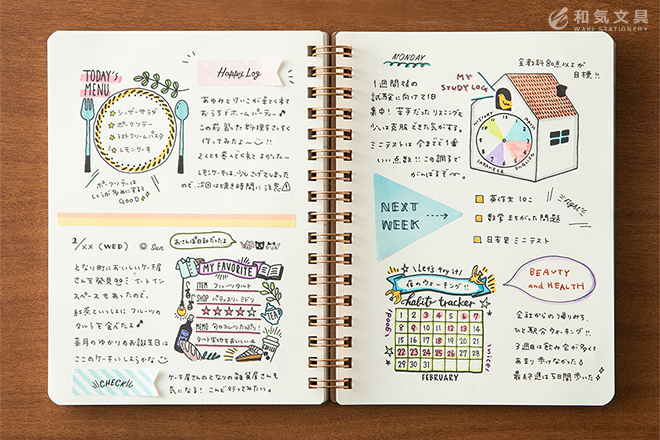 和気文具
WAKI STATIONERY
TODAY's
MENU
シーザーサラダ
ポークソテー
トマトクリームパスタ
レモンケーキ
ポークソテーは
しょうが多めにすると
GOOD
Happy Log
あゆみとりいこが
おうちでホームパーティー♪
この前習った料理をさっそく
作ってみたよ〜
2人とも喜んでくれてよかった〜
レモンケーキは、少しこげてしまった
ので、次回は焼き時間に注意
2/XX (WED) Sun
おさんぽ日和だったよ
となり町においしいケーキ屋
さんを発見!! イートイン
スペースもあったので、
紅茶といっしょに フルーツの
タルトを食べたよ♪
来月のゆかりのお誕生日は
ここのケーキにしようかな
CHECK!
MY FAVORITE
ITEM フルーツタルト
SHOP パティスリーミドリ
MEMO 旬のフルーツたっぷり!
タルト生地もおいしい
TEA
ケーキ屋さんのとなりの雑貨屋さんも
気になる! こんど行ってみたい。
MONDAY
全教科80点以上が
目標!!
1週間後の
試験に向けて1日
集中! 苦手だったリスニングも
少しは克服できた気がする。
ミニテストは 今までで1番
いい点数!! この調子で
がんばるぞ〜。
MY
STUDY LOG
HISTORY
MATH
ENGLISH
JAPANESE
NEXT
WEEK
英作文 10こ
数学 まちがった問題
日本史 ミニテスト
Fight!!
Let's try it!
夜のウォーキング!!
habit tracker
good!
nice!
1 2 3 4 5 6 7
8 9 10 11 12 13 14
15 16 17 18 19 20 21
22 23 24 25 26 27 28
29 30 31
FEBRUARY
BEAUTY
and HEALTH
会社からの帰り道、
ひと駅分ウォーキング!!
3週目は飲み会が多くて
あまり歩けなかった
最終週は5日間歩いた